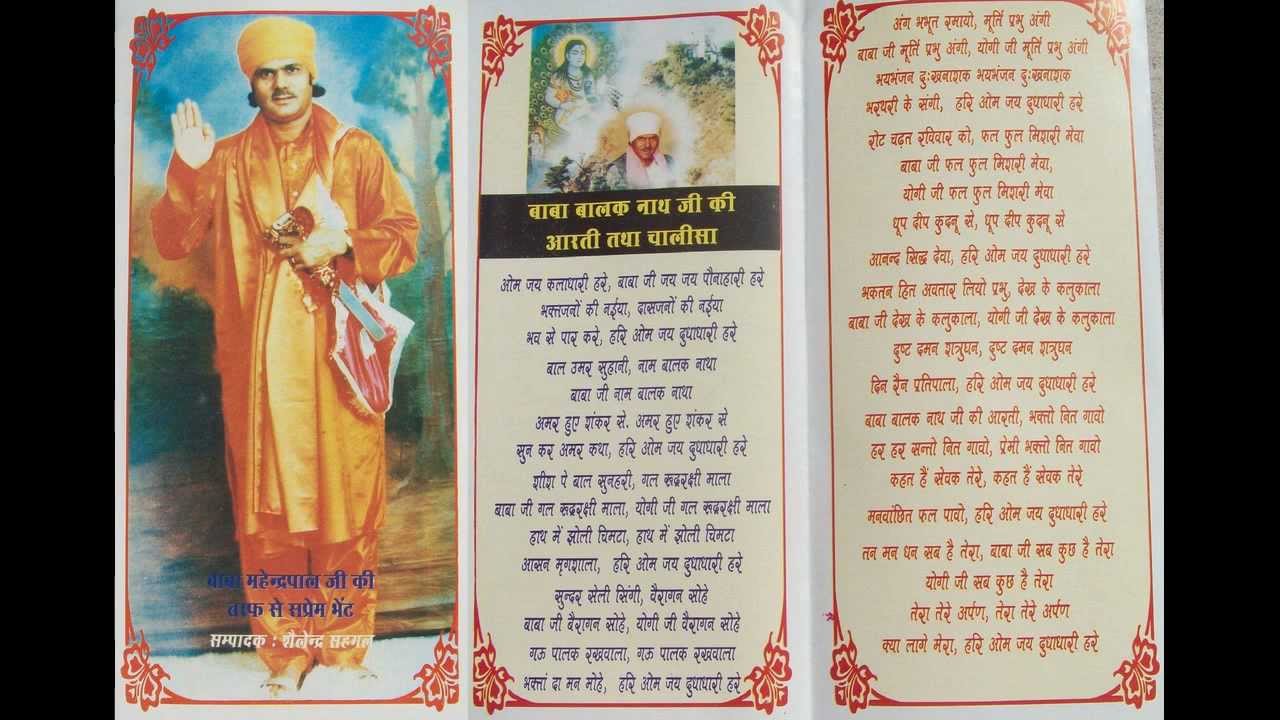 बाबा महेन्द्रपाल जी की
तरफ से सप्रेम भेंट
सम्पादक : शैलेन्द्र सहमल
बाबा बालक नाथ जी की
आरती तथा चालीसा
ओम जय कलाधारी हरे, बाबा जी जय जय पौनाहारी हरे
भक्तजनों की नईया, दासजनों की नईया
भव से पार करे, हरि ओम जय दुधाधारी हरे
बाल उमर सुहानी, नाम बालक नाथा
बाबा जी नाम बालक नाथा
अमर हुए शंकर से. अमर हुए शंकर से
सुन कर अमर कथा, हरि ओम जय दुधाधारी हरे
शीश पे बाल सुनहरी, गल रूद्ररक्षी माला
बाबा जी गल रूद्ररक्षी माला, योगी जी गल रूद्ररक्षी माला
हाथ में झोली चिमटा, हाथ में झोली चिमटा
आसन मृगशाला, हरि ओम जय दुधाधारी हरे
सुन्दर सेली सिंगी, वैरागन सोहे
बाबा जी वैरागन सोहे, योगी जी वैरागन सोहे
गऊ पालक रखवाला, गऊ पालक रखवाला
भक्तां दा मन मोहे, हरि ओम जय दुधाधारी हरे
अंग भभूत रमायो, मूर्ति प्रभु अंगी
बाबा जी मूर्ति प्रभु अंगी, योगी जी मूर्ति प्रभु अंगी
भयभंजन दुःखनाशक भयभंजन दुःखनाशक
भरथरी के संगी, हरि ओम जय दुधाधारी हरे
रोट चढ़त रविवार को, फल फुल मिशरी मेवा
बाबा जी फल फुल मिशरी मेवा,
योगी जी फल फुल मिशरी मेवा
धूप दीप कुदनू से, धूप दीप कुदनू से
आनन्द सिद्ध देवा, हरि ओम जय दुधाधारी हरे
भकतन हित अवतार लियो प्रभु, देख के कलुकाला
बाबा जी देख के कलुकाला, योगी जी देख के कलुकाला
दुष्ट दमन शत्रुघन, दुष्ट दमन शत्रुघन
दिन रैन प्रतिपाला, हरि ओम जय दुधाधारी हरे
बाबा बालक नाथ जी की आरती, भक्तो नित गावो
हर हर सन्तो नित गावो, प्रेमी भक्तो नित गावो
कहत हैं सेवक तेरे, कहत हैं सेवक तेरे
मनवांछित फल पावो, हरि ओम जय दुधाधारी हरे
तन मन धन सब है तेरा, बाबा जी सब कुछ है तेरा
योगी जी सब कुछ है तेरा
तेरा तेरे अर्पण, तेरा तेरे अर्पण
क्या लागे मेरा, हरि ओम जय दुधाधारी हरे